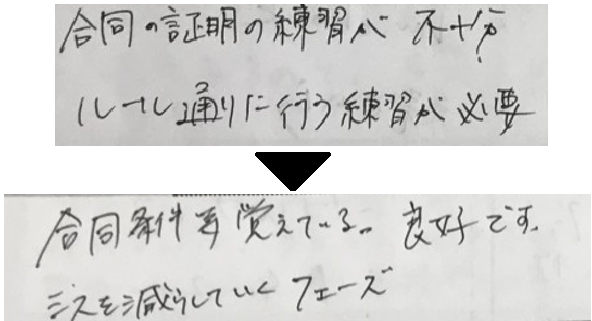 合同の証明の練習が不十分
ルール通りに行う練習が必要
合同条件等覚えている。良好です。
ミスを減らしていくフェーズ